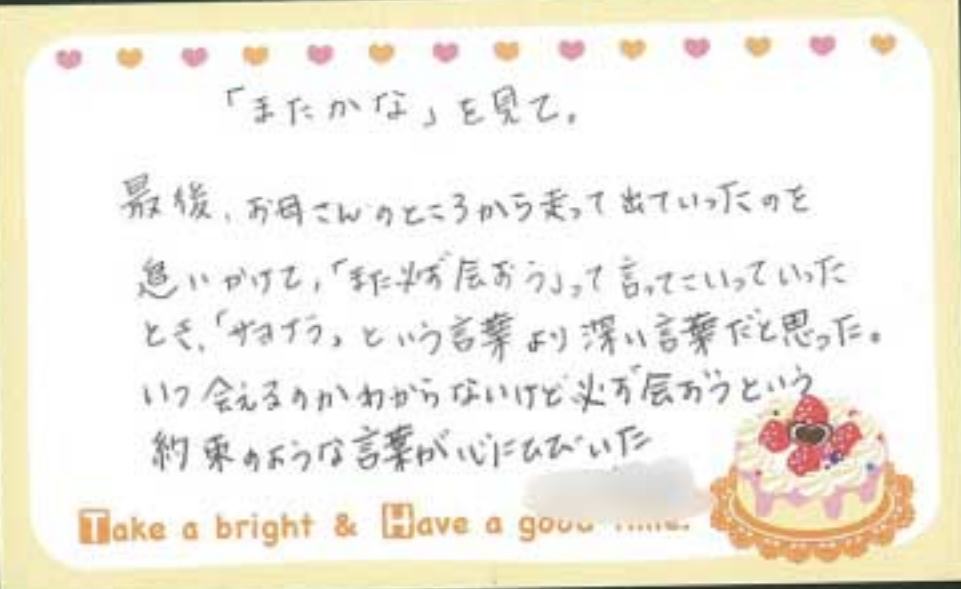 「またかな」を見て。
最後、お母さんのところから走って出ていったのを
追いかけて、「また必ず会おう」って言ってこいっていった
とき、「サヨナラ」という言葉より深い言葉だと思った。
いつ会えるのかわからないけど必ず会おうという
約束のような言葉が心にひびいた
Take a bright & Have a good time.